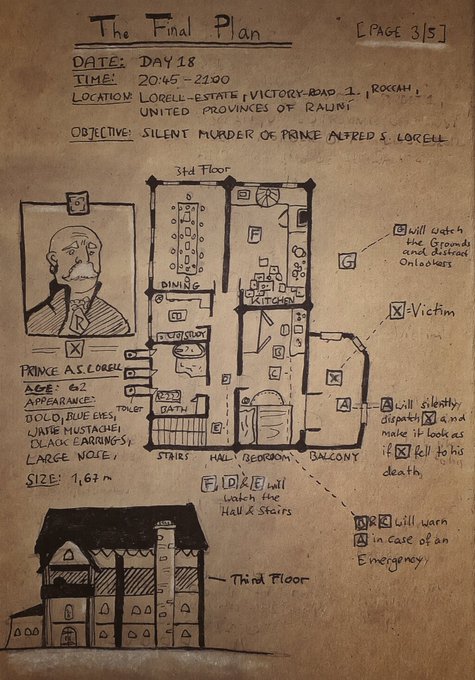 The Final Plan
[PAGE 3/5]
DATE: DAY 18
TIME: 20:45 - 21:00
LOCATION: LORELL-ESTATE, VICTORY-ROAD 1, ROCCAH,
UNITED PROVINCES OF RAUNÍ
OBJECTIVE: SILENT MURDER OF PRINCE ALFRED S. LORELL
3rd Floor
G will watch
the Grounds
and distract
Onlookers
G
F
DINING
KITCHEN
X = Victim
R
X
STUDY
B
C
X
PRINCE A.S. LORELL
AGE: 62
APPEARANCE:
BOLD, BLUE EYES,
WHITE MUSTACHE,
BLACK EARRINGS,
LARGE NOSE,
SIZE: 1,67m
TOILET
BATH
D
E
A
A will silently
dispatch X and
make it look as
if X fell to his
death
STAIRS
HALL
BEDROOM
BALCONY
F, D & E will
watch the
Hall & Stairs
B & C will warn
A in case of an
Emergency
Third Floor